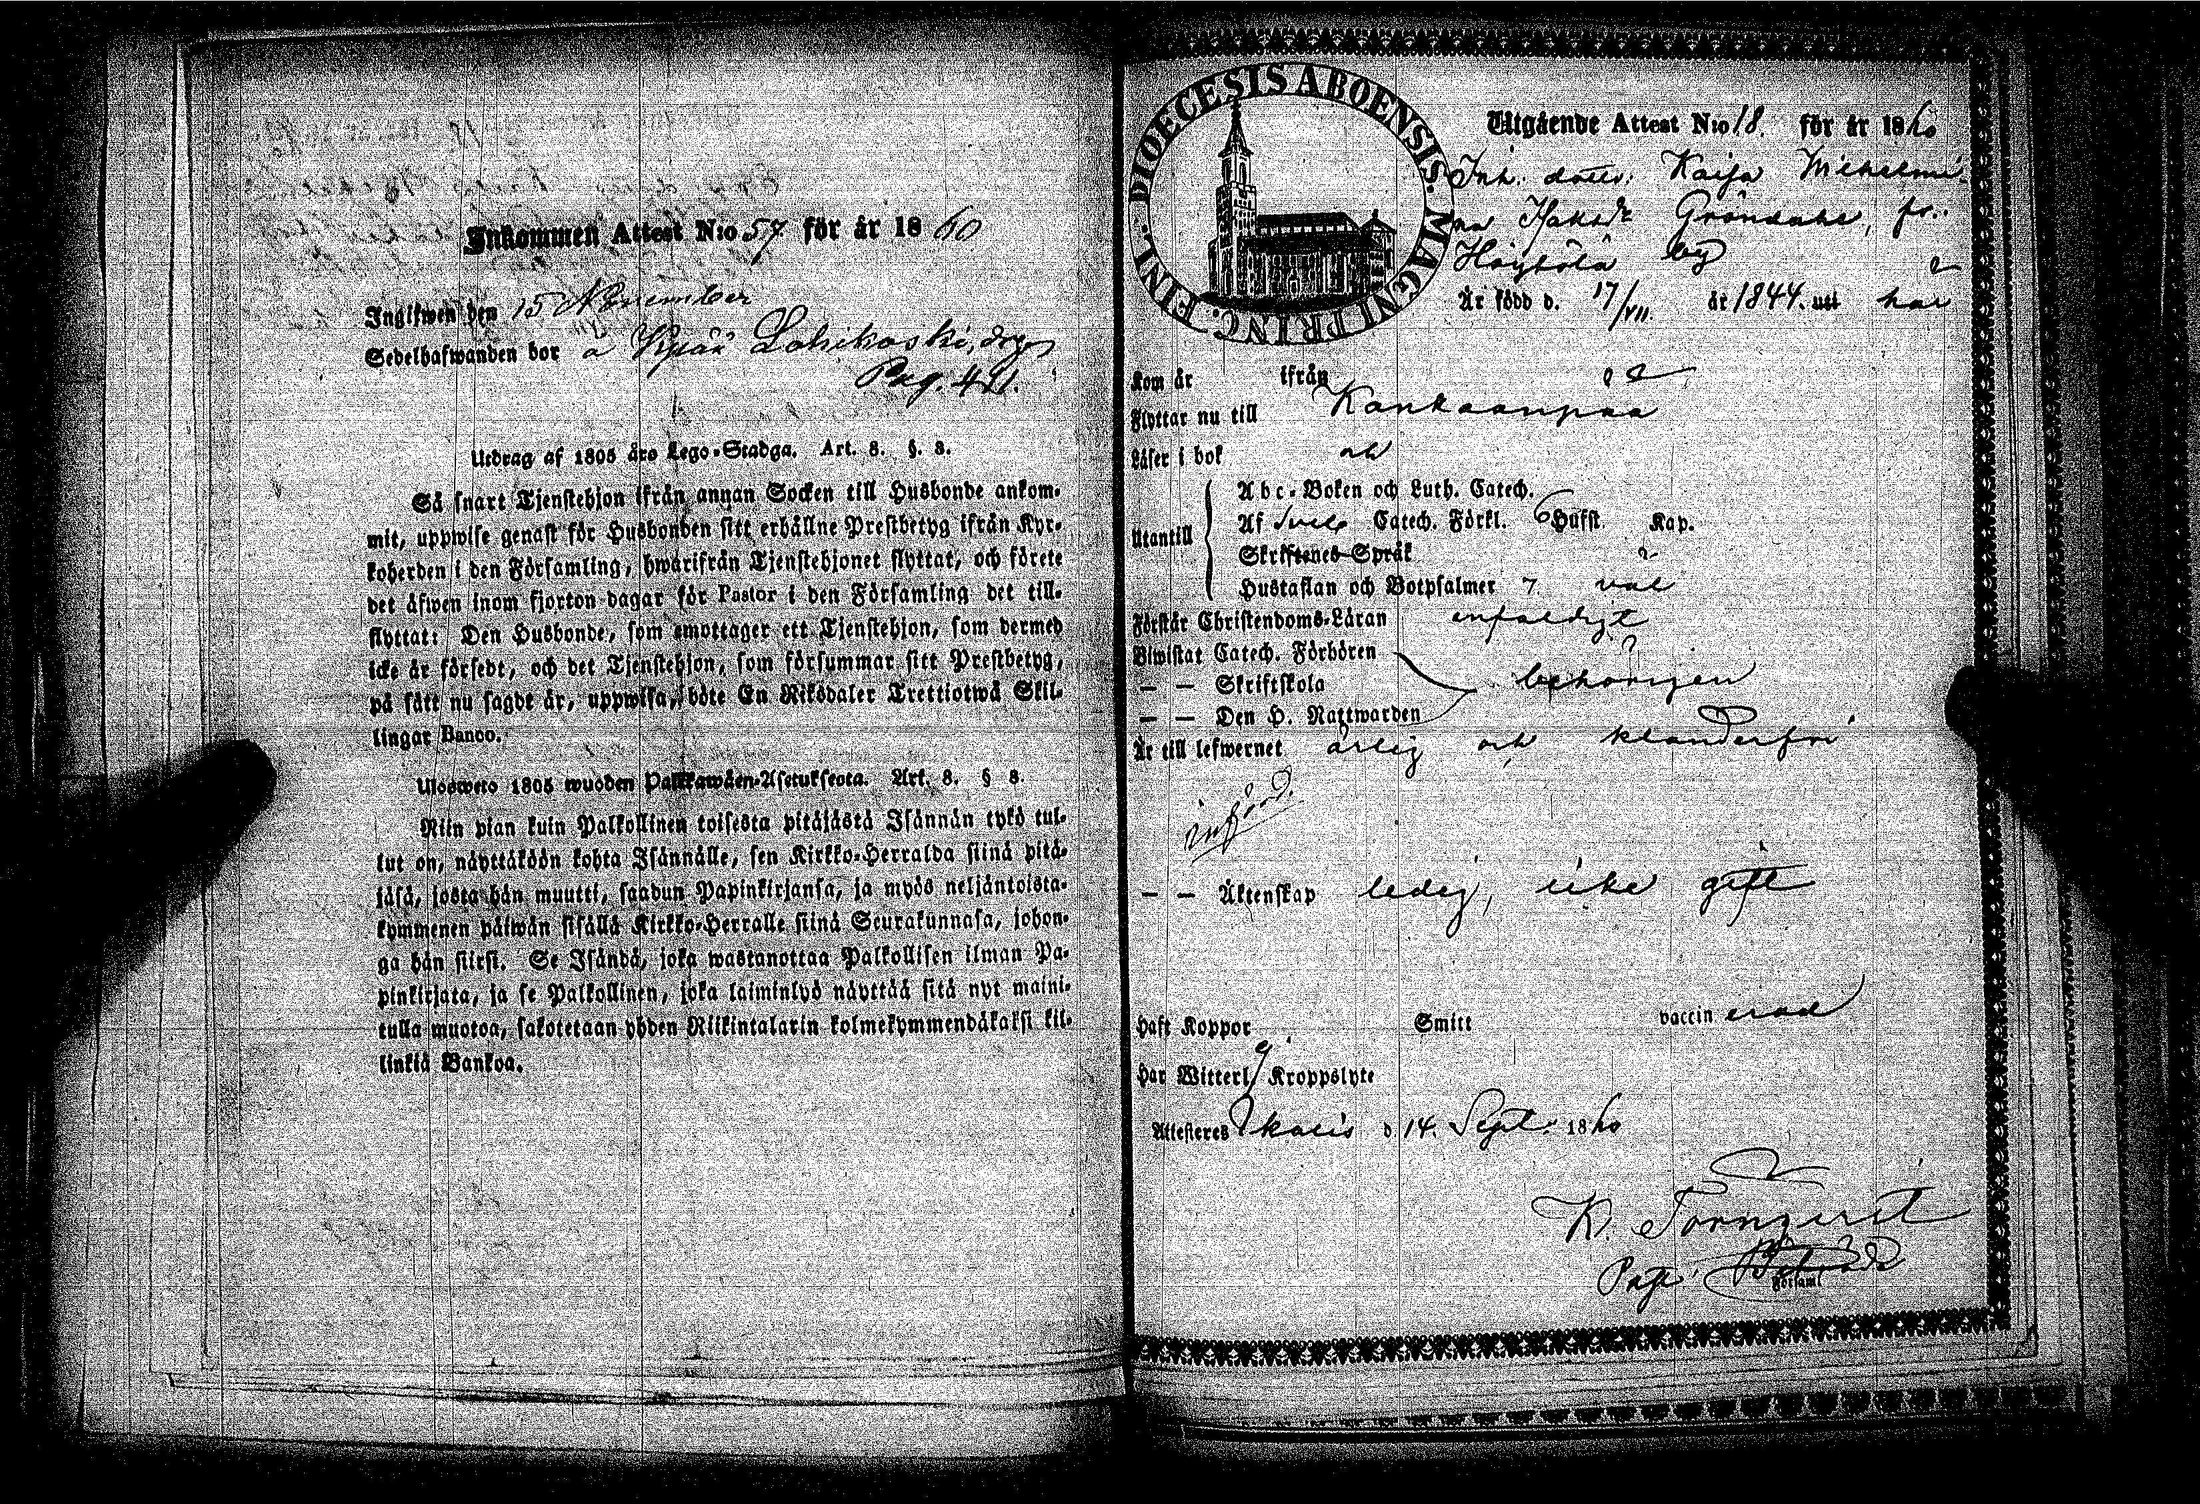 Inkommen Attest N:o 57 för år 1860
Ingifwen den 15 November
Sedelhafwanden bor å Lohikoski,
Pag. 421.
Utdrag af 1805 års Lego-Stadga. Art. 8. §. 8.
Så snart Tjenstehjon ifrån annan Socken till Husbonde ankom-
mit, uppwise genast för Husbonden sitt erhållne Prestbetyg ifrån Kyr-
koherden i den Församling, hwarifrån Tjenstehjonet flyttat, och förete
det äfwen inom fjorton dagar för Pastor i den Församling det till-
flyttat: Den Husbonde, som emottager ett Tjenstehjon, som dermed
icke är försedt, och det Tjenstehjon, som försummar sitt Prestbetyg,
på sätt nu sagdt är, uppwisa, böte En Riksdaler Trettiotwå Skil-
lingar Banco.
Ulosweto 1805 wuoden Palkkawäen-Asetuksesta. Art. 8. § 8.
Niin pian kuin Palkollinen toisesta pitäjästä Isännän tykö tul-
lut on, näyttäköön kohta Isännälle, sen Kirkko-Herralda siinä pitä-
jäsä, josta hän muutti, saadun Papinkirjansa, ja myös neljäntoista-
kymmenen päiwän sisällä Kirkko-Herralle siinä Seurakunnasa, johon-
ga hän siirsi. Se Isändä, joka wastanottaa Palkollisen ilman Pa-
pinkirjata, ja se Palkollinen, joka laiminlyö näyttää sitä nyt maini-
tulla muotoa, sakotetaan yhden Riikintalarin kolmekymmendäkaksi kil-
linkiä Bankoa.
DIOECESIS ABOENSIS. MAGNI PRINC. FINL.
Utgående Attest N:o 18. för år 1860
Inh. dotter Kaisa Wilhelmi-
na Gröndahl, fr.
Höytölä by
Är född d. 17/VII. år 1844. utt har
Kom år ifrån
Flyttar nu till Kankaanpää
Läser i bok
Utantill
Abc-Boken och Luth. Catech.
Af Sveb Catech. Förkl. 6 Hufst. Kap.
Skriftenes Språk
Hustaflan och Botpsalmer 7 väl
Förstår Christendoms-Läran enfaldigt
Biwistat Catech. Förhören
— — Skriftskola behörigen
— — Den H. Nattwarden
Är till lefwernet ärlig och klanderfri
införd.
— — Äktenskap ledig, icke gift
Haft Koppor Smitt vaccinerad
Har Witterl. Kroppslyte
Attesteres Ikalis d 14. Sept. 1860
K. Törnqvist
Församl